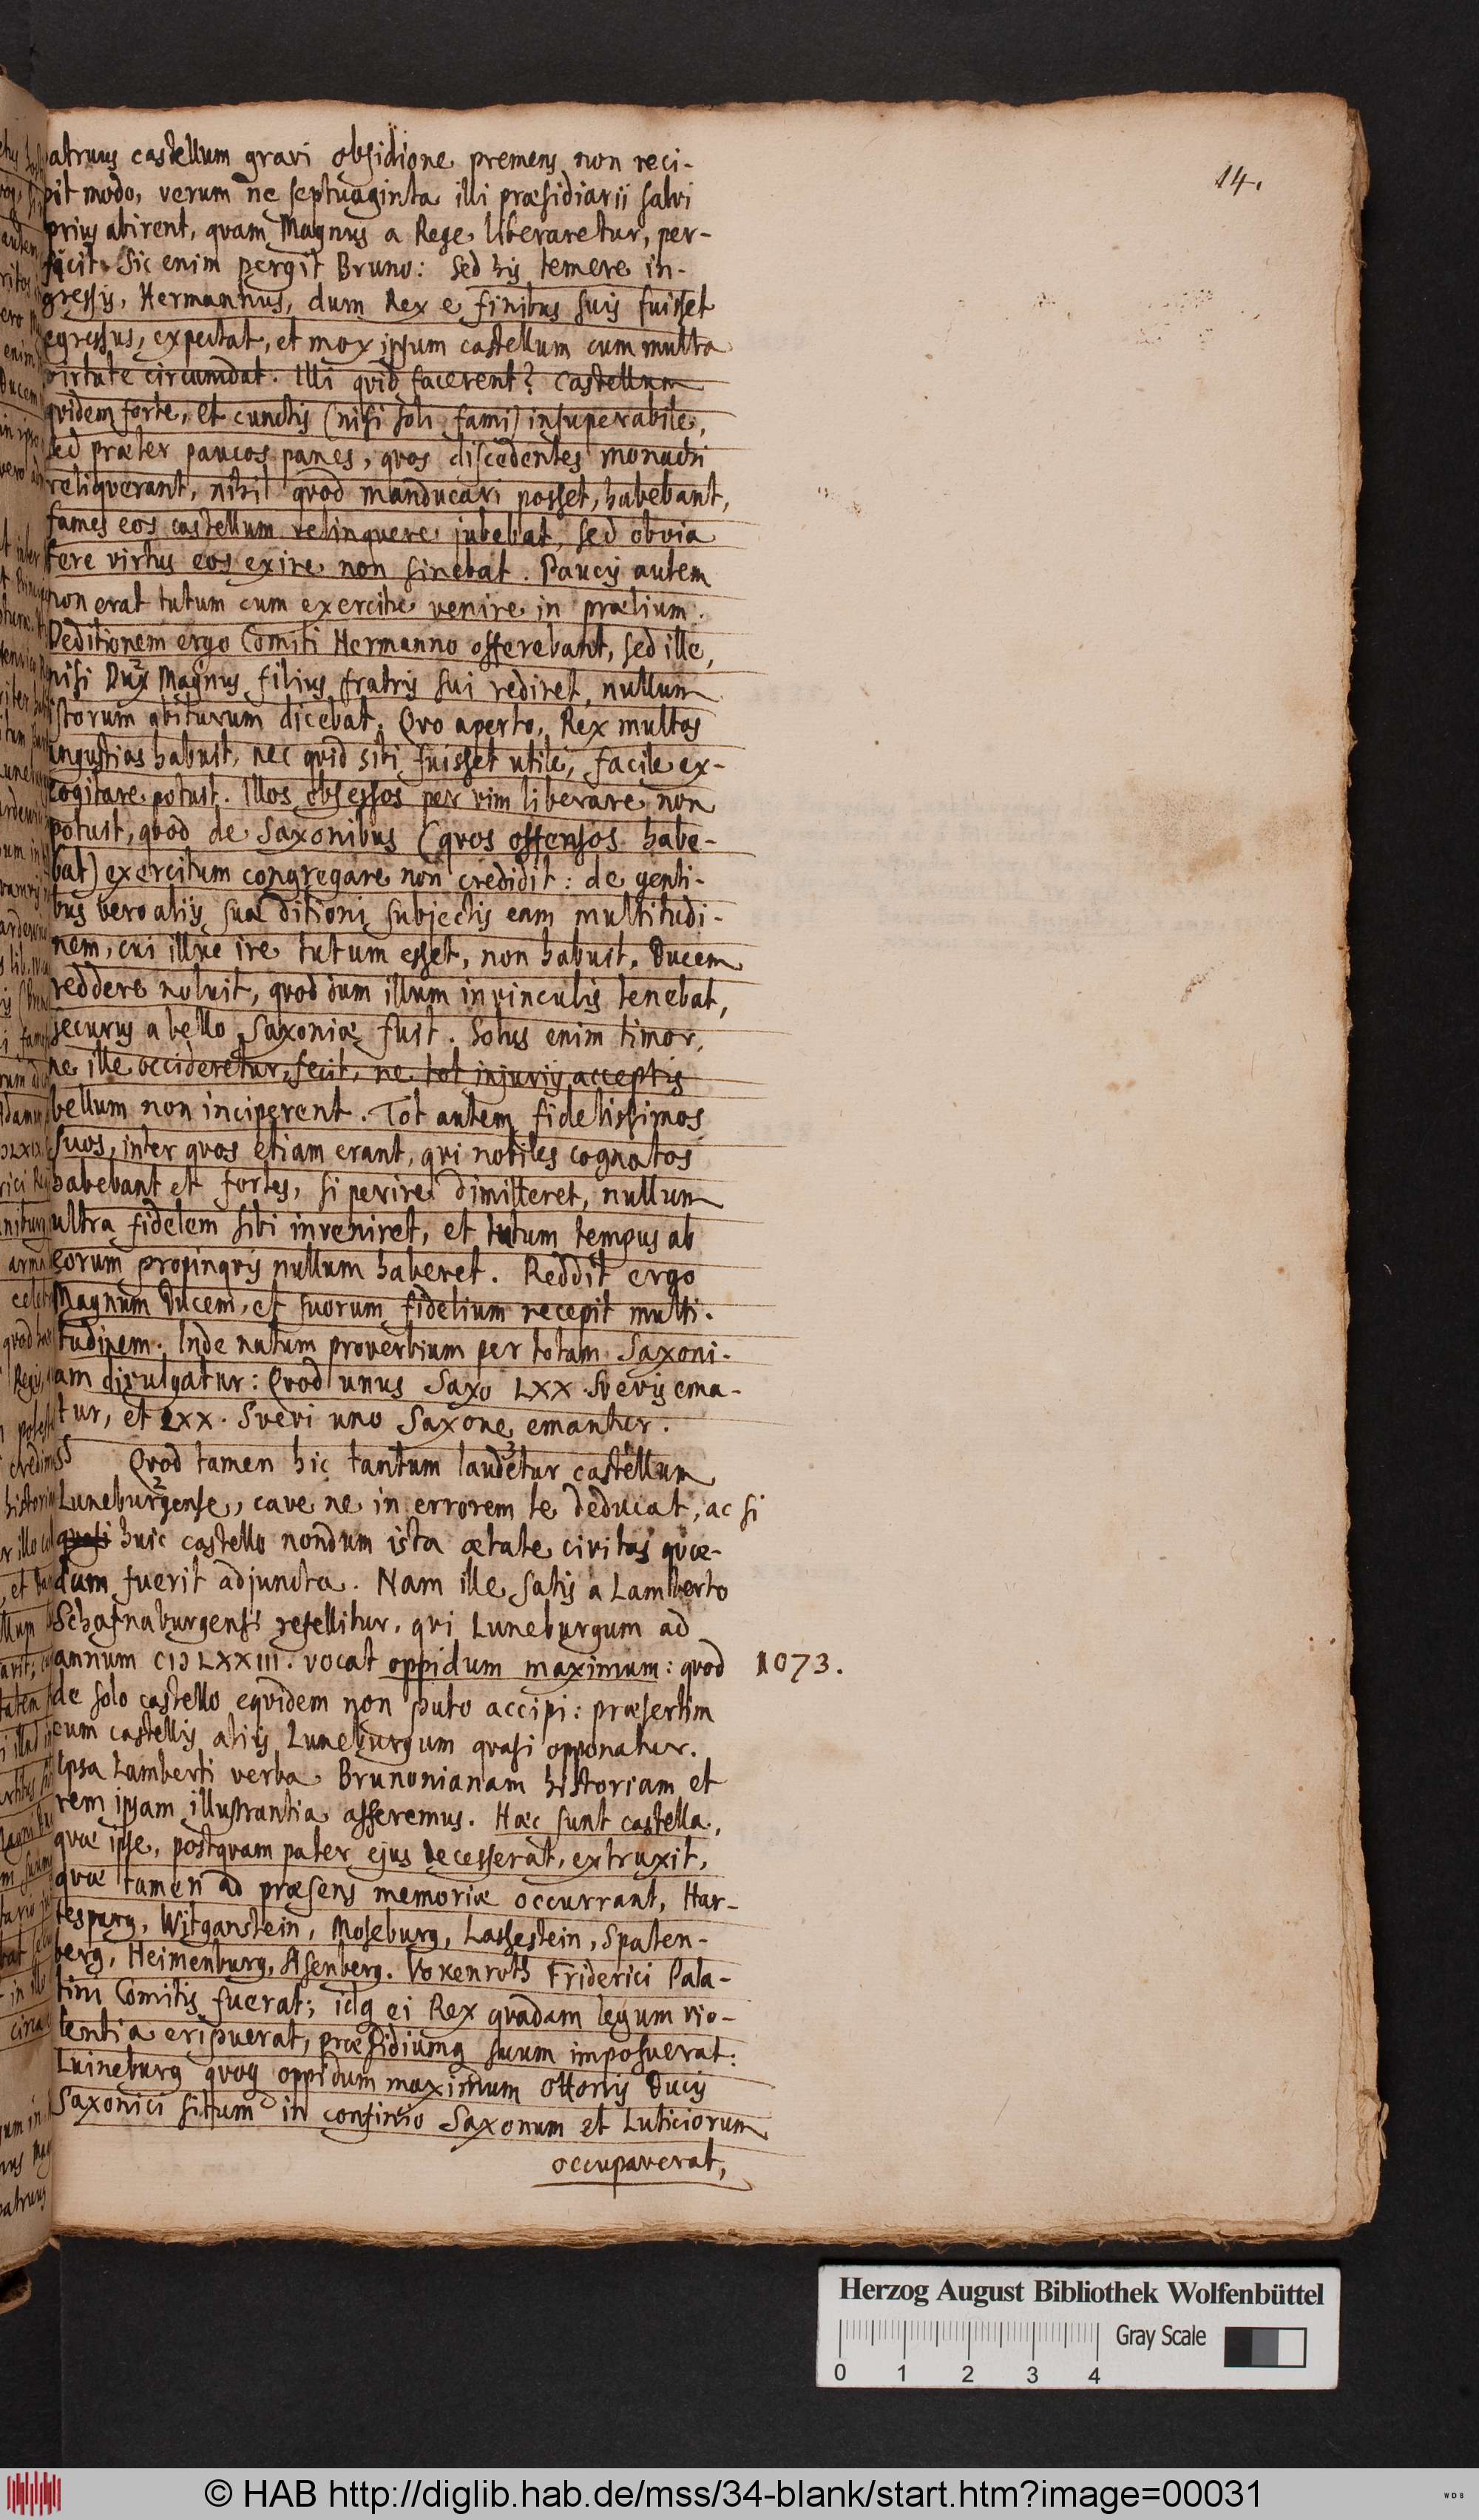 14.
atruus castellum gravi obsidione premens non reci-
pit modo, verum ne septuaginta illi præsidiarii salvi
prius abirent, qvam Magnus a Rege liberaretur, per-
ficit. Sic enim pergit Bruno: Sed his temere in-
gressis, Hermannus, dum Rex e finibus suis fuisset
egressus, expectat, et mox ipsum castellum cum multa
virtute circumdat. Illi qvid facerent? Castellum
qvidem forte, et cunctis (nisi soli fami) insuperabile,
sed præter paucos panes, qvos discedentes monachi
reliqverant, nihil qvod manducari posset, habebant,
fames eos castellum relinqvere jubebat, sed obvia
fere virtus eos exire non sinebat. Paucis autem
non erat tutum cum exercitu venire in prælium.
Deditionem ergo Comiti Hermanno offerebant, sed ille,
nisi Dux Magnus filius fratris sui rediret, nullum
istorum abiturum dicebat. Qvo aperto, Rex multas
angustias habuit, nec qvid sibi fuisset utile, facile ex-
cogitare potuit. Illos obsessos per vim liberare non
potuit, qvod de Saxonibus (qvos offensos habe-
bat) exercitum congregare non credidit: de genti-
bus vero aliis suæ ditioni subjectis eam multitudi-
nem, cui illuc ire tutum esset, non habuit. Ducem
reddere noluit, qvod dum illum in vinculis tenebat,
securus a bello Saxoniæ fuit. Solus enim timor,
ne ille occideretur, fecit, ne tot injuriis acceptis
bellum non inciperent. Tot autem fidelissimos
suos, inter qvos etiam erant, qvi nobiles cognatos
habebant et fortes, si perire dimitteret, nullum
ultra fidelem sibi inveniret, et tutum tempus ab
eorum propinqvis nullum haberet. Reddit ergo
Magnum Ducem, et suorum fidelium recepit multi-
tudinem. Inde natum proverbium per totam Saxoni-
am divulgatur: Qvod unus Saxo LXX. Svevis ema-
tur, et LXX. Svevi uno Saxone emantur.
Qvod tamen hic tantum laudetur castellum
Luneburgense, cave ne in errorem te deducat, ac si
quasi huic castello nondum ista ætate civitas qvæ-
dam fuerit adjuncta. Nam ille satis a Lamberto
Schafnaburgensi refellitur, qvi Luneburgum ad
annum CIↃ LXXIII. vocat oppidum maximum: qvod 1073.
de solo castello eqvidem non puto accipi: præsertim
cum castellis aliis Luneburgum qvasi opponatur.
Ipsa Lamberti verba Brunonianam historiam et
rem ipsam illustrantia afferemus. Hæc sunt castella,
qvæ ipse, postqvam pater ejus decesserat, extruxit,
qvæ tamen ad præsens memoriæ occurrant, Har-
tesburg, Witganstein, Moseburg, Lassestein, Spaten-
berg, Heimenburg, Asenberg. Vokenroth Friderici Pala-
tini Comitis fuerat; idq ei Rex qvadam legum vio-
lentia eripuerat, præsidiumq suum imposuerat:
Luineburg qvoq oppidum maximum Ottonis Ducis
Saxonici situm in confinio Saxonum et Luticiorum
occupaverat,
Herzog August Bibliothek Wolfenbüttel
0 1 2 3 4 Gray Scale
© HAB http://diglib.hab.de/mss/34-blank/start.htm?image=00031
WDB